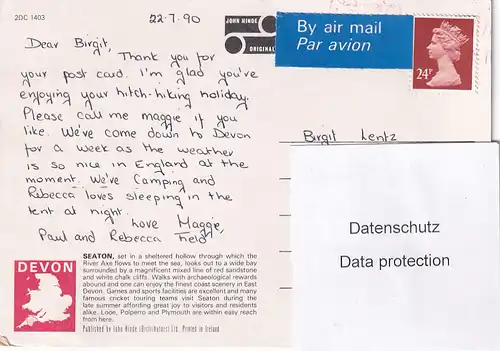 2DC 1403
22.7.90
JOHN HINDE
ORIGINAL
By air mail
Par avion
24P
Dear Birgit,
Thank you for
your post card. I'm glad you've
enjoying your hitch-hiking holiday.
Please call me maggie if you
like. We've come down to Devon
for a week as the weather
is so nice in England at the
moment. We've Camping and
Rebecca loves sleeping in the
tent at night.
Love Maggie,
Paul and Rebecca Field
Birgit Lentz
Datenschutz
Data protection
DEVON
SEATON, set in a sheltered hollow through which the
River Axe flows to meet the sea, looks out to a wide bay
surrounded by a magnificent mixed line of red sandstone
and white chalk cliffs. Walks with archaeological rewards
abound and one can enjoy the finest coast scenery in East
Devon. Games and sports facilities are excellent and many
famous cricket touring teams visit Seaton during the
late summer affording great joy to visitors and residents
alike. Looe, Polperro and Plymouth are within easy reach
from here.
Published by John Hinde (Distributors) Ltd. Printed in Ireland